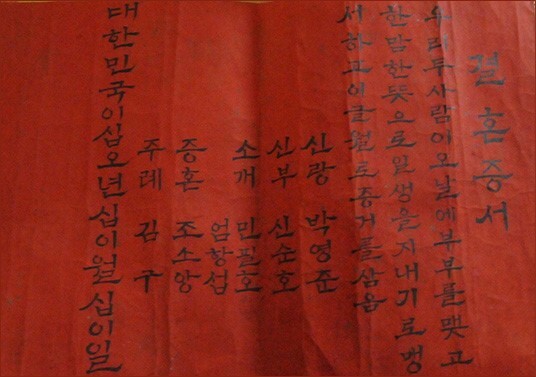 결혼증서
우리두사람이오날에부부를맺고
한맘한뜻으로일생을지내기로맹
서하고이글월로증거를삼음
신랑 박영준
신부 신순호
소개 민필호
엄항섭
증혼 조소앙
주레 김구
대한민국이십오년십이월십이일